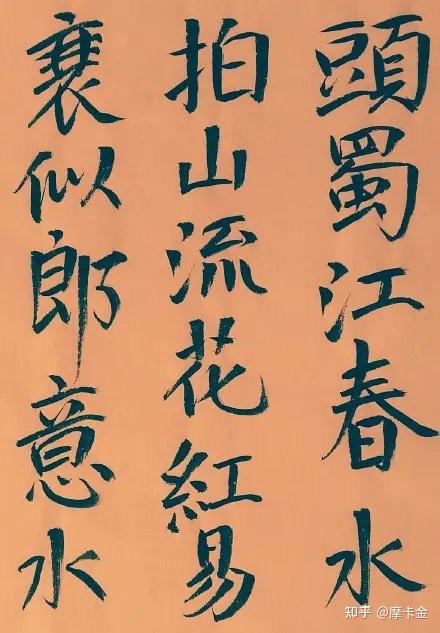 頭蜀江春水
拍山流花紅易
衰似郎意水
知乎 @摩卡金